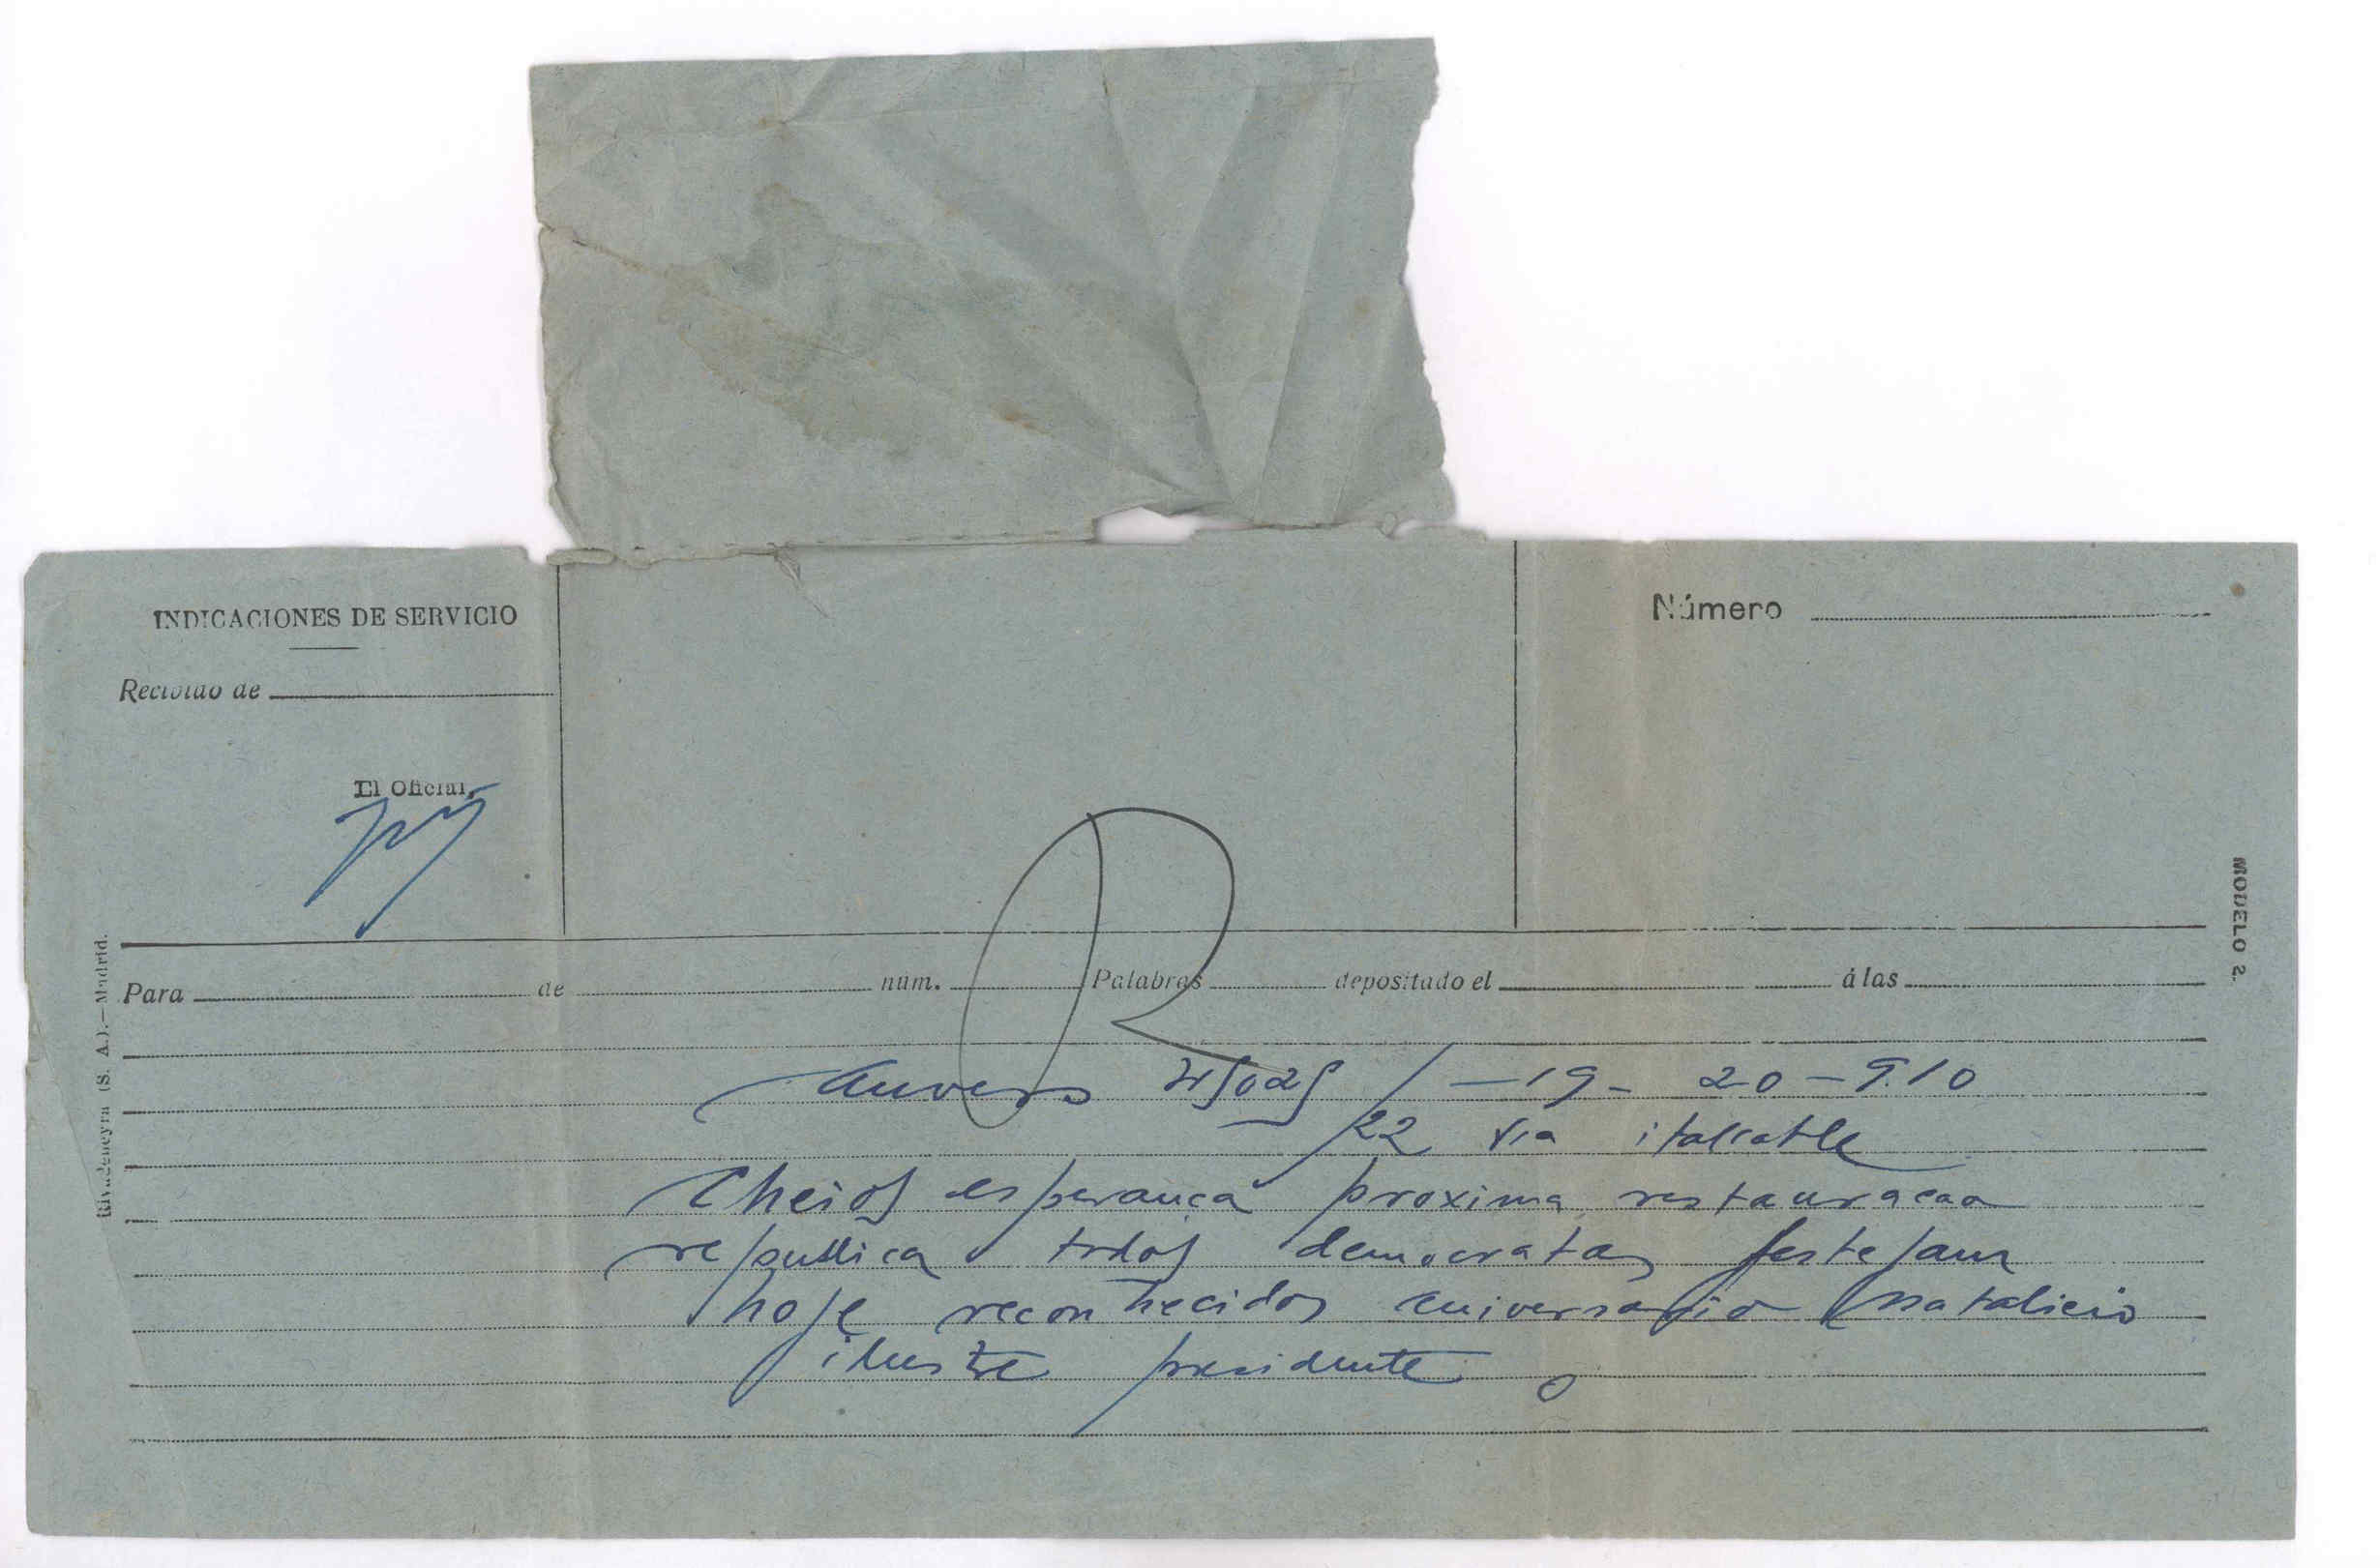 INDICACIONES DE SERVICIO
Recibido de
El Oficial,
Número
MODELO 2.
Rivadeneyra (S. A.).—Madrid.
Para de num. Palabras depositado el á las
R
Anvers 25025 / —19— 20—9.10
22 via italcable
Cheios esperança proxima restauracao
republica todos democratas festejam
hoje reconhecidos aniversario natalicio
ilustre presidente